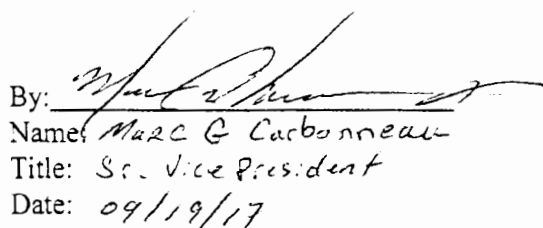 By:
Name: Marc G Carbonneau
Title: Sr. Vice President
Date: 09/19/17